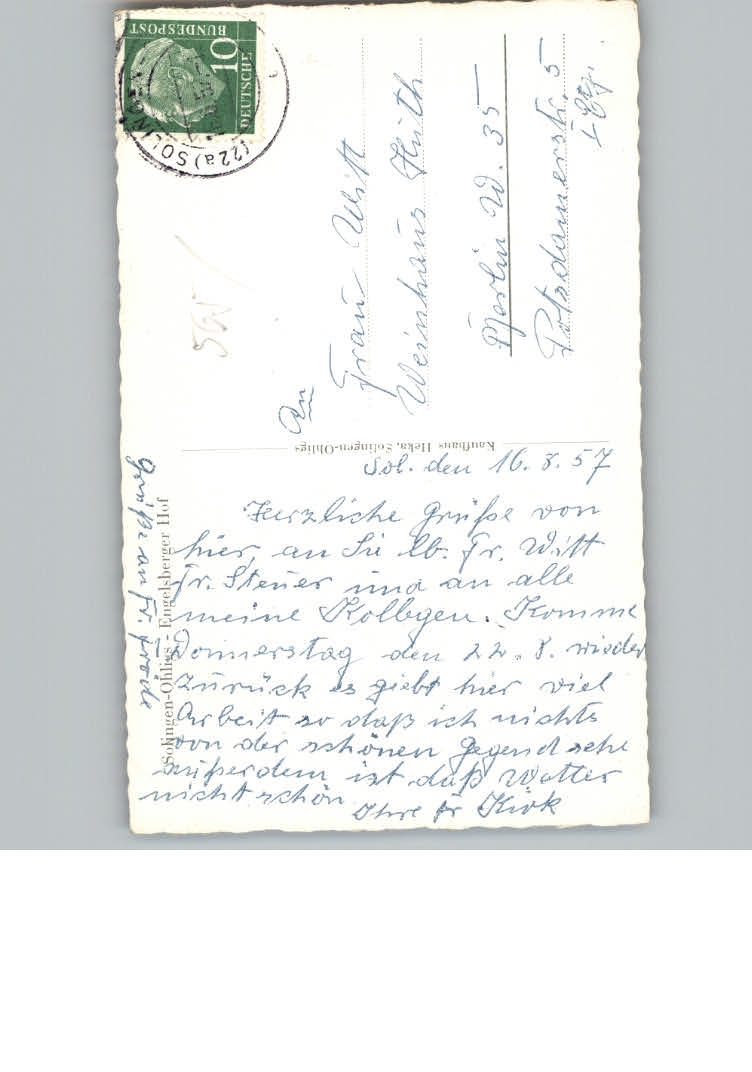 Sol. den 16.8.57
Herzliche Grüße von
hier, an Sie lb. Fr. Witt
Fr. Steuer und an alle
meine Kollegen. Komme
Donnerstag den 22.8. wieder
zurück es giebt hier viel
Arbeit so daß ich nichts
von der schönen Gegend sehe
außerdem ist daß Wetter
nicht schön
Ihre Fr Kirk
Grüße an Fr.
Solingen-Ohligs - Engelsberger Hof
Kaufhaus Heka, Solingen-Ohligs
An
Frau Witt
Weinhaus Huth
Berlin W. 35
Potsdamerstr. 5
I Etg.
10
DEUTSCHE
BUNDESPOST
(22a) SOLINGEN